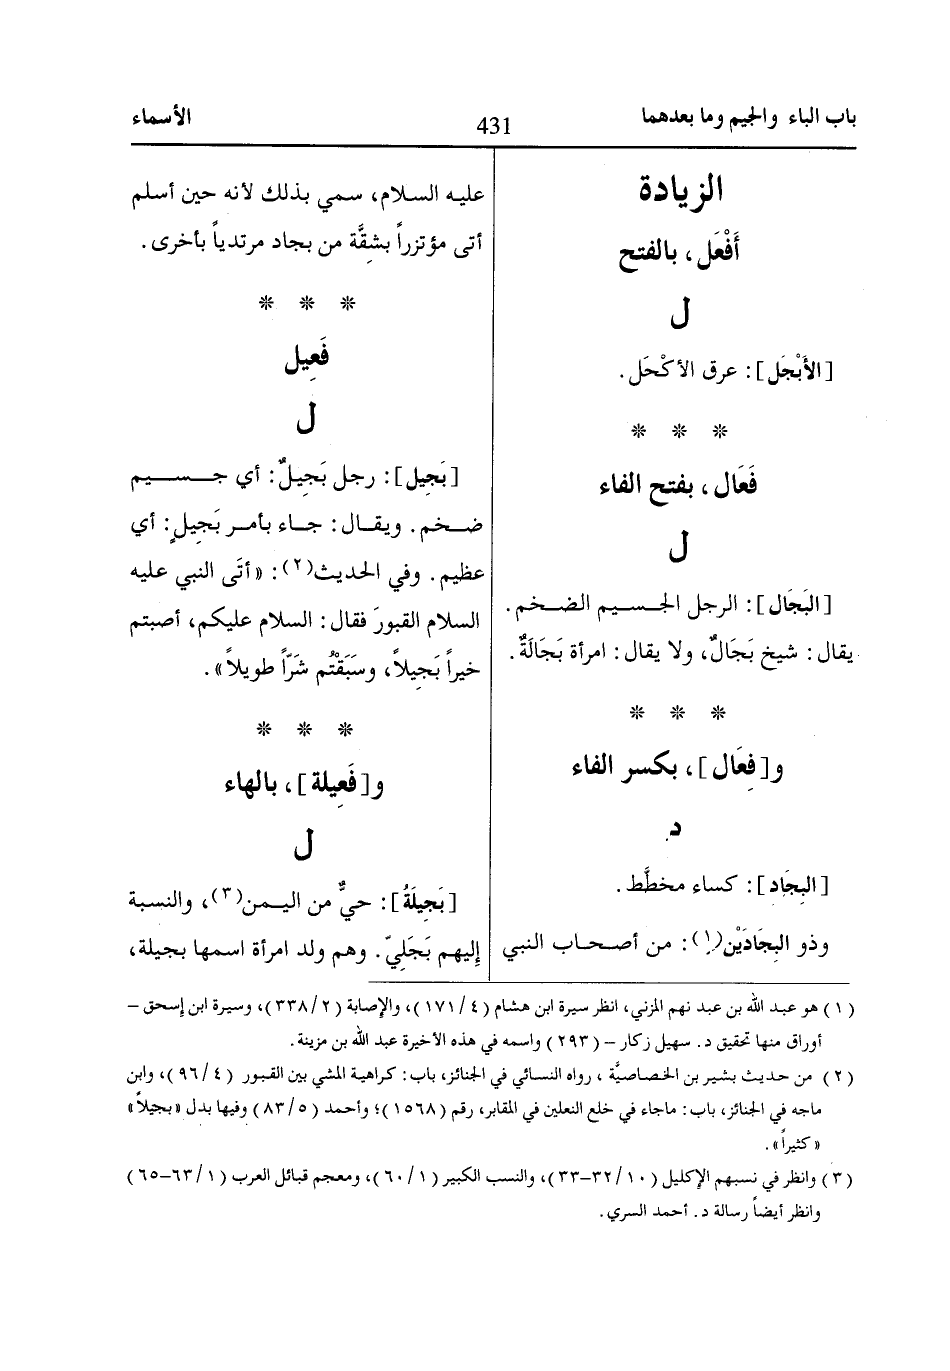 باب الباء والجيم وما بعدهما
431
الأسماء
الزيادة
أَفْعَل، بالفتح
ل
[الأَبْجَل]: عرق الأكْحَل.
* * *
فَعَال، بفتح الفاء
ل
[البَجَال]: الرجل الجسيم الضخم.
يقال: شيخ بَجَالٌ، ولا يقال: امرأة بَجَالَةٌ.
* * *
و[فِعَال]، بكسر الفاء
د
[البِجَاد]: كساء مخطَّط.
وذو البِجَادَيْن(١): من أصحاب النبي
عليه السلام، سمي بذلك لأنه حين أسلم
أتى مؤتزراً بشقَّة من بجاد مرتدياً بأخرى.
* * *
فَعِيل
ل
[بَجِيل]: رجل بَجِيلٌ: أي جسيم
ضخم. ويقال: جاء بأمر بَجيلٍ: أي
عظيم. وفي الحديث(٢): «أتَى النبي عليه
السلام القبورَ فقال: السلام عليكم، أصبتم
خيراً بَجِيلاً، وسَبَقْتُم شَرّاً طويلاً».
* * *
و[فَعِيلة]، بالهاء
ل
[بَجِيلَةُ]: حيٌّ من اليمن(٣)، والنسبة
إِليهم بَجَليّ. وهم ولد امرأة اسمها بجيلة،
(١) هو عبد الله بن عبد نهم المزني، انظر سيرة ابن هشام (٤/ ١٧١)، والإصابة (٢/ ٣٣٨)، وسيرة ابن إسحق –
أوراق منها تحقيق د. سهيل زكار – (٢٩٣) واسمه في هذه الأخيرة عبد الله بن مزينة.
(٢) من حديث بشير بن الخصاصيَّة، رواه النسائي في الجنائز، باب: كراهية المشي بين القبور (٤/ ٩٦)، وابن
ماجه في الجنائز، باب: ماجاء في خلع النعلين في المقابر، رقم (١٥٦٨)؛ وأحمد (٥/ ٨٣) وفيها بدل «بجيلاً»
«كثيراً».
(٣) وانظر في نسبهم الإكليل (١٠/ ٣٢–٣٣)، والنسب الكبير (١/ ٦٠)، ومعجم قبائل العرب (١/ ٦٣–٦٥)
وانظر أيضاً رسالة د. أحمد السري.